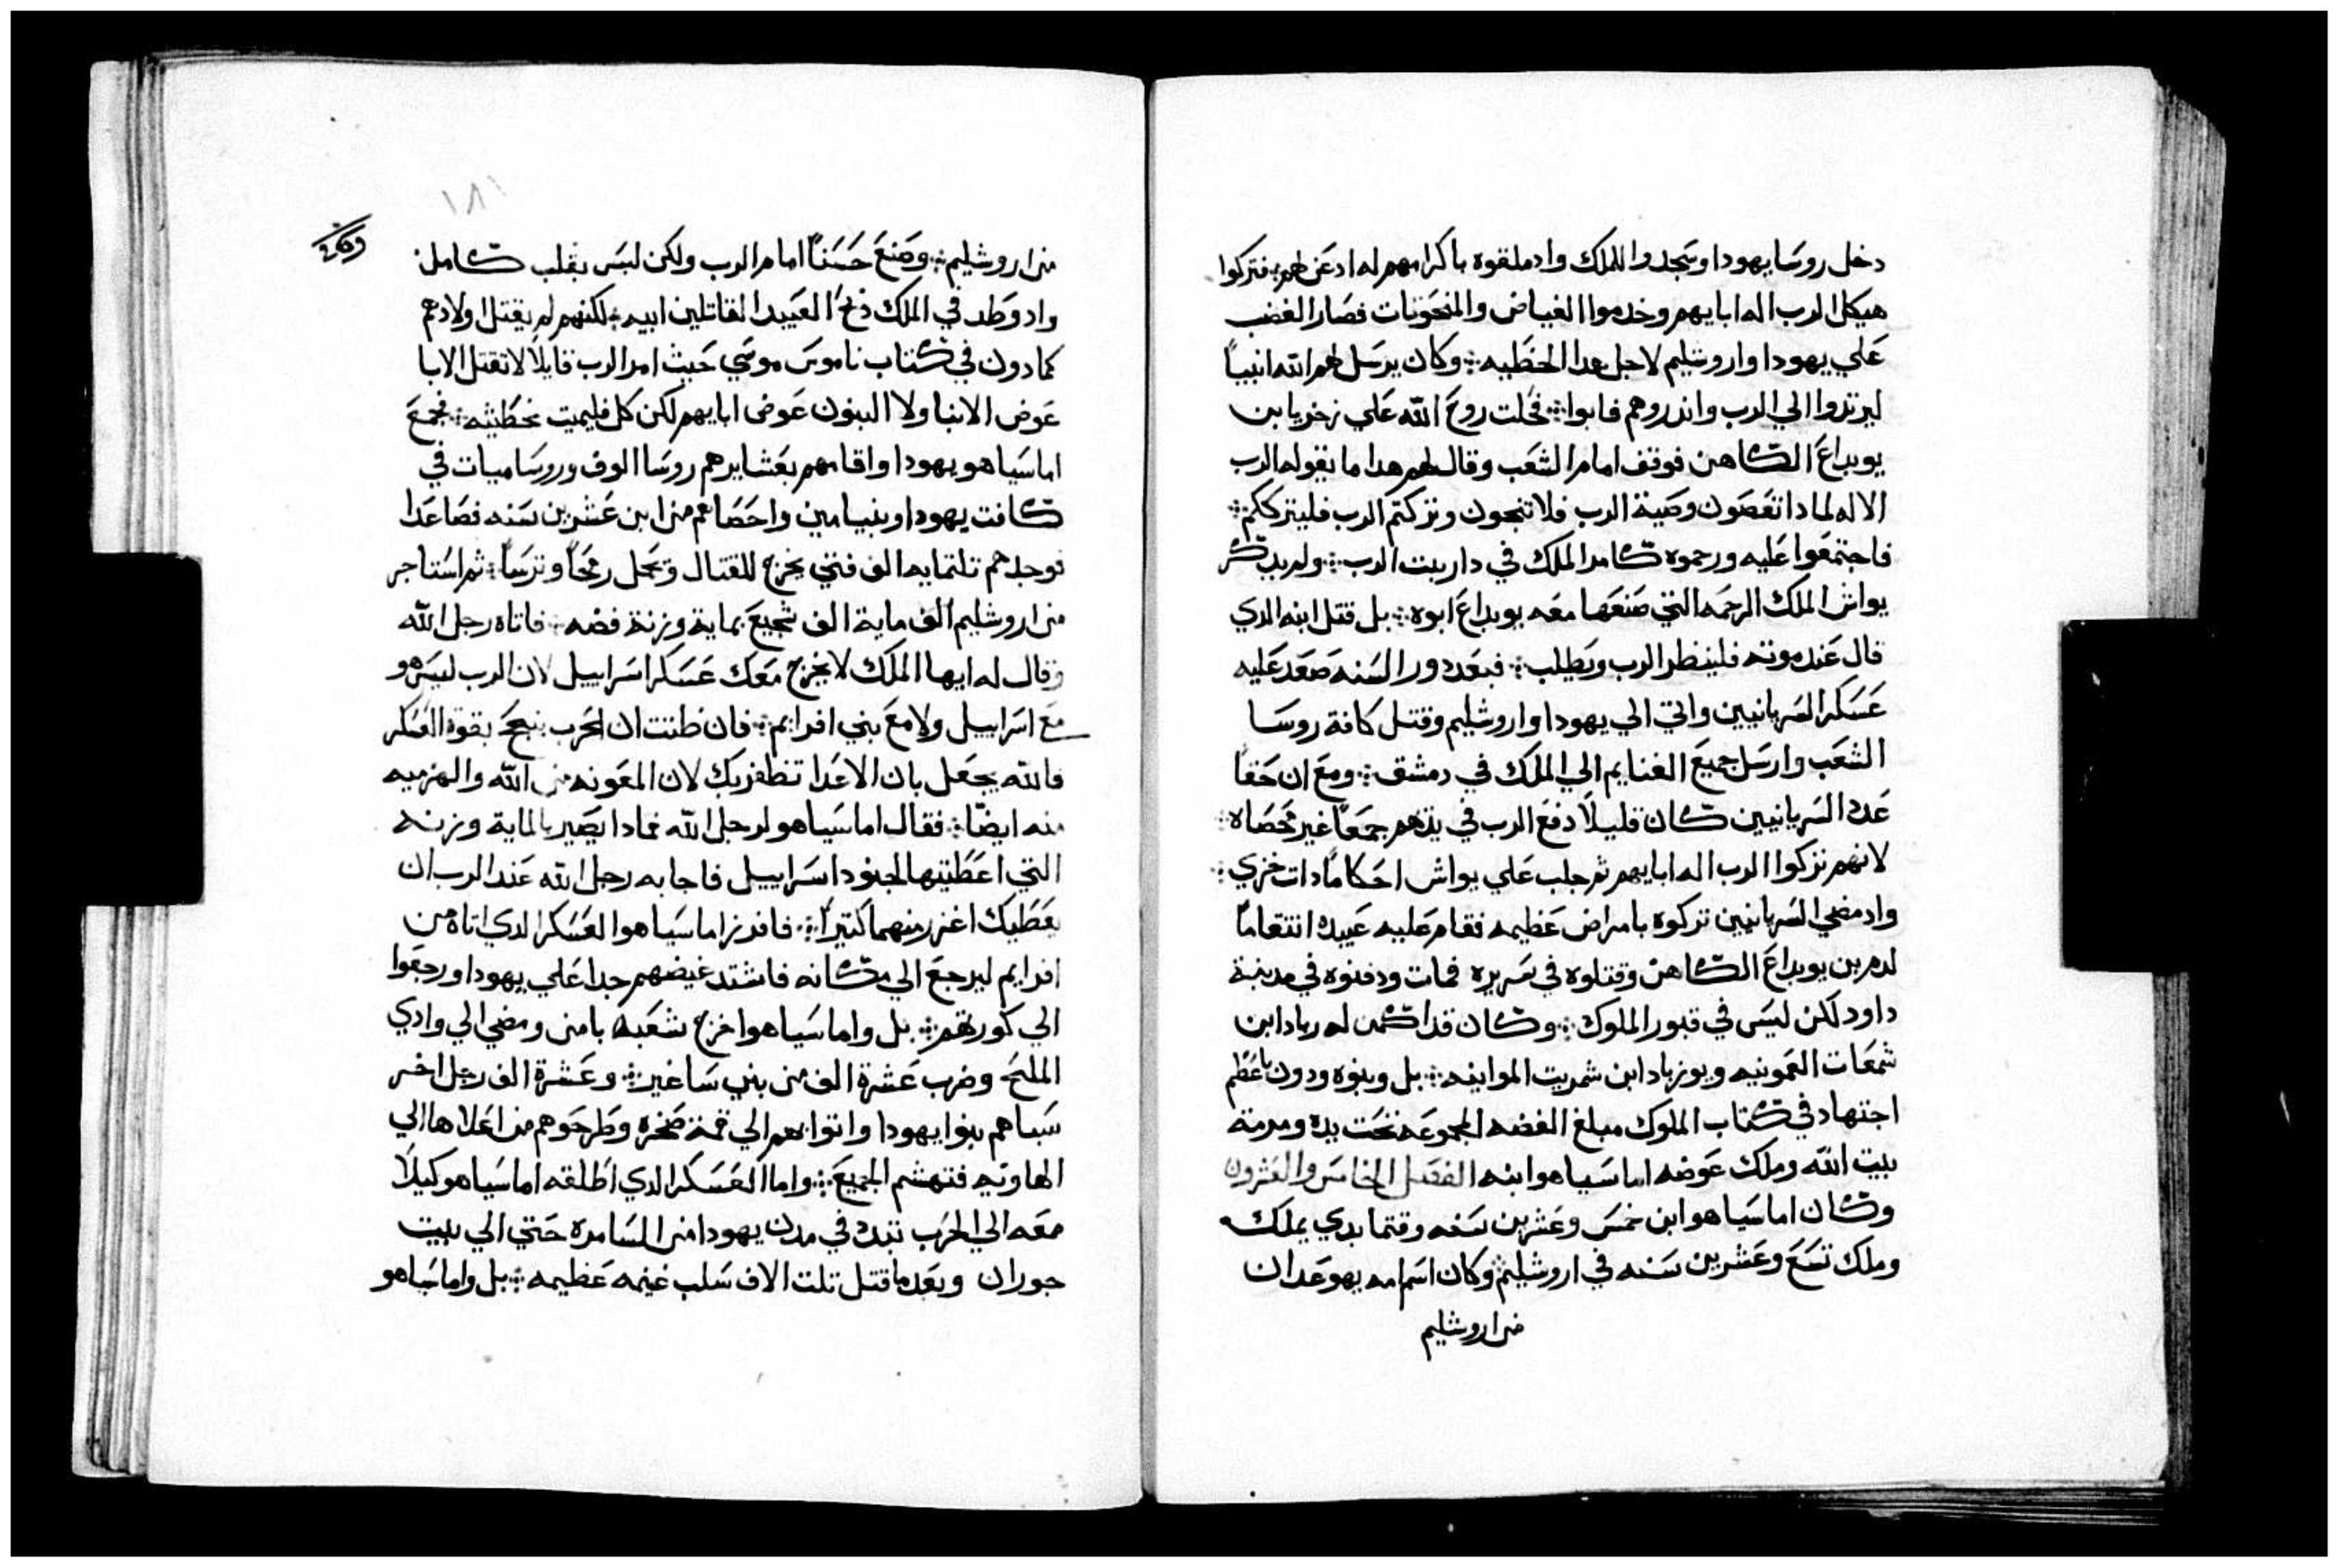 دخل روسَا يهودا وسَجدوا للملك واد ملقوه باكرامهم له ادعَن لهم፧ فتركوا
هيكل الرب اله ابايهم وخدموا الغياض والمنحَوتات فصَار الغضب
عَلي يهودا واروشليم لاجل هدا الخطَيه፧ وكان يرسَل لهم الله انبياً
ليرتدوا الي الرب واندروهم فابوا፧ فحَلت روحَ الله عَلي زخريا بن
يويداعَ الكاهن فوقف امام الشعَب وقال لهم هدا ما يقوله الرب
الاله لمادا تعَصَون وصَية الرب فلا تنجون وتركتم الرب فليترككم፧
فاجتمعَوا عَليه ورجموه كامر الملك في دار بيت الرب፧ ولم يدكر
يواش الملك الرحمَه التي صَنعَها معَه يويداعَ ابوه፧ بل قتل ابنه الدي
قال عَند موته فلينظر الرب ويَطلب፧ فبعَد دور السَنه صَعَد عَليه
عَسَكر السَريانيين واتي الي يهودا واروشليم وقتل كافة روسَا
الشعَب وارسَل جميعَ الغنايم الي الملَك في دمشق፧ ومعَ ان حَقاً
عَدد السَريانيين كان قليلاً دفعَ الرب في يدهم جمعَاً غير محَصَاه፧
لانهم تركوا الرب اله ابايهم ثم جلب عَلي يواش احَكاماً دات خزي፧
واد مضي السَريانيين تركوه بامراض عَظيمه فقام عَليه عَبيده انتقاماً
لدم بن يويداعَ الكاهن وقتلوه في سَريره فمات ودفنوه في مدينة
داود لكن ليسَ في قبور الملوك፧ وكان قد اكمن له رباد ابن
شمعَات العَمونيه ويوزباد ابن شمريت الموابيه፧ بل وبنوه ودون باعَظم
اجتهاد في كتاب الملوك مبلغ الفضه المجموعَه تحَت يده ومرمة
بيت الله وملك عَوضه اماسَياهو ابنه الفصَل الخامسَ والعَشرون
وكان اماسَياهو ابن خمسَ وعَشرين سَنه وقتما بدي يملك
وملك تسَعَ وعَشرين سَنه في اروشليم፧ وكان اسَم امه يهوعَدان
من اروشليم
١٨١
من اروشليم፧ وصَنعَ حَسَناً امام الرب ولكن ليسَ بقلب كامل
واد وطَد في الملك دبحَ العَبيد القاتلين ابيه፧ لكنهم لم يقتل اولادهم
كما دون في كتاب ناموسَ موسَي حَيث امر الرب قايلاً لا تقتل الابا
عَوض الابنا ولا البنون عَوض ابايهم لكن كل فليميت بخطَيته፧ فجمعَ
اماسَياهو يهودا واقامهم بعَشايرهم روسَا الوف وروسَا ميات في
كافت يهودا وبنيامين واحَصَاهم من ابن عَشرين سَنه فصَاعَدا
فوجدهم تلتمايه الف فتي يخرج للقتال وتحَمل رمحَاً وترسَاً፧ ثم استاجر
من اروشليم الف ماية الف شجيعَ بماية وزنة فضه፧ فاتاه رجل الله
وقال له ايها الملَك لا يخرج معَك عَسَكر اسَراييل لان الرب ليسَ هو
معَ اسَراييل ولا معَ بني افرايم፧ فان ظننت ان الحَرب ينجحَ بقوة العَسَكر
فالله يجعَل بان الاعَدا تظفر بك لان المعَونه من الله والهزميه
منه ايضَاً፧ فقال اماسَياهو لرجل الله فمادا يصَير بالماية وزنه
التي اعَطَيتها لجنود اسَراييل فاجابه رجل الله عَند الرب ان
يعَطَيك اغزر منهما كتيراً፧ فافرز اماسَياهو العَسَكر الدي اتاه من
افرايم ليرجعَ الي مكانه فاشتد غيضهم جدا عَلي يهودا ورجعَوا
الي كورتهم፧ بل واماسَياهو اخرج شعَبه بامن ومضي الي وادي
الملحَ وضرب عَشرة الف من بني سَاغير፧ وعَشرة الف رجل اخر
سَباهم بنوا يهودا واتوا بهم الي قمة صَخره وطَرحَوهم من اعَلاها الي
الهاويه فتهشم الجميعَ፧ واما العَسَكر الدي اطَلقه اماسَياهو كيلاً
معَه الي الحرَب تبدد في مدن يهودا من السَامره حَتي الي بيت
حوران وبعَدما قتل تلت الاف سَلب غنيمه عَظيمه፧ بل واماسَياهو